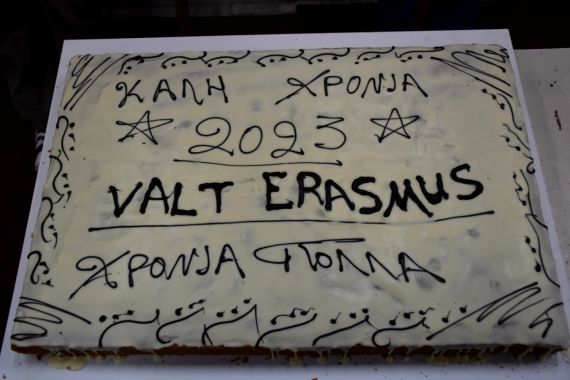 ΚΑΛΗ ΧΡΟΝΙΑ
2023
VALT ERASMUS
ΧΡΟΝΙΑ ΠΟΛΛΑ